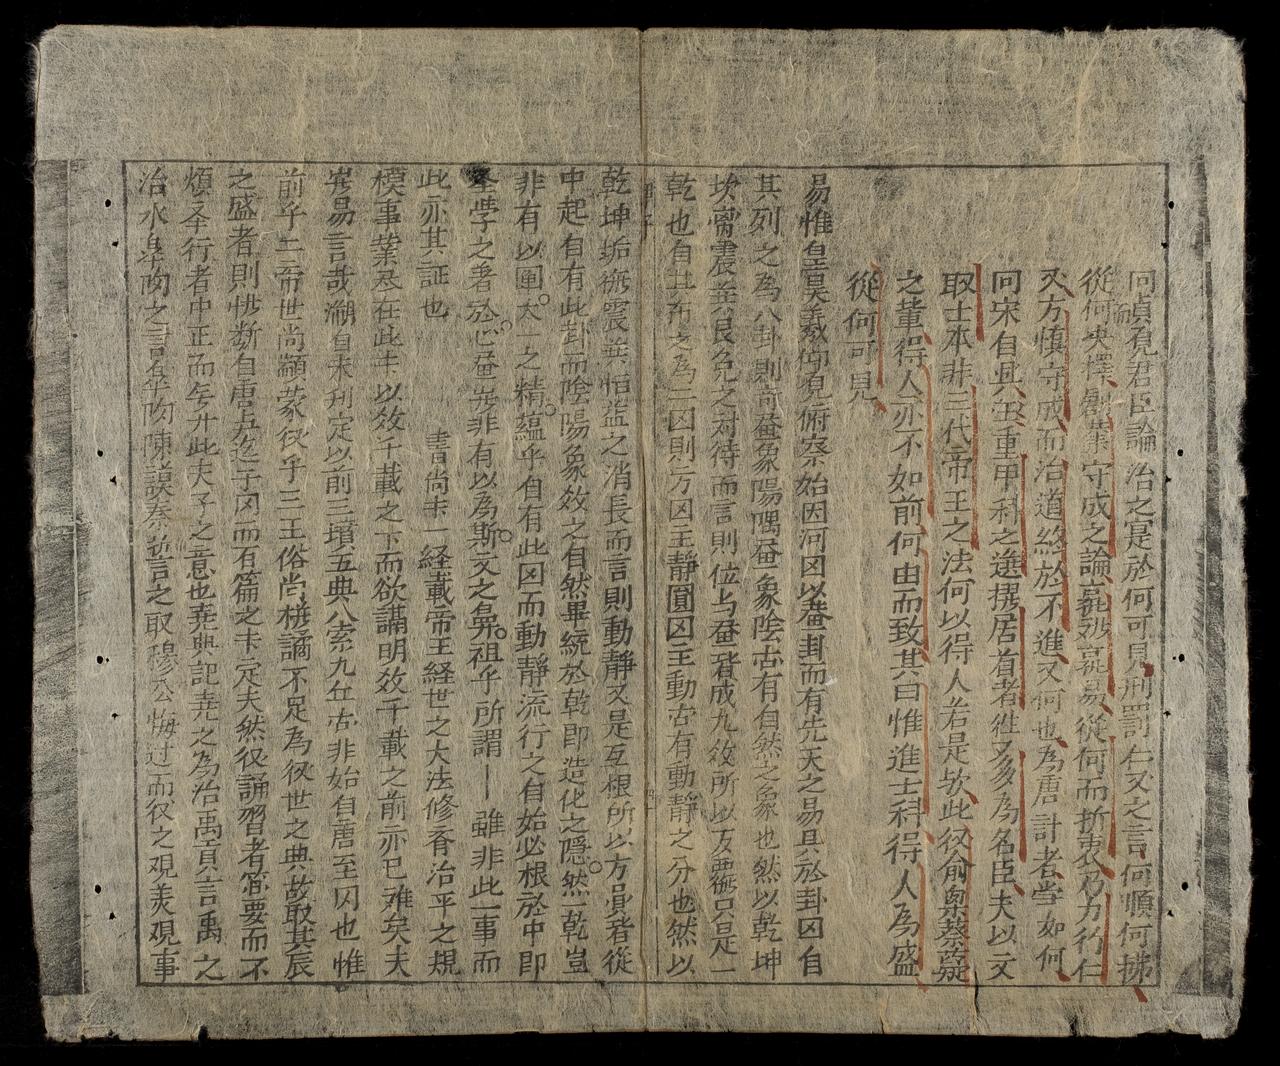 問貞觀君臣論治之寔於何可見刑罰仁义之言何順何拂
從何央擇創業守成之論難易從何而折衷乃力行仁
义方慎守成而治道終於不進又何也為唐計者当如何
问宋自具重甲科之選撰居首者徃又多為名臣夫以文
取士本非三代帝王之法何以得人若是欤此後俞臬蔡嶷
之輩得人亦不如前何由而致其曰惟進士科得人為盛
從何可見
易惟皇昊羲仰覌俯察始因河囡以畫卦而有先天之易具於卦囡自
其列之為八卦則奇畫象陽隅畫象陰古有自然之象也然以乾坤
坎离震巽艮兌之对待而言則位与畫皆成九数所以反覆只是一
乾也自其布之為二囡則方囡主靜圓囡主動古有動靜之分也然以
乾坤垢復震巽恒益之消長而言則動靜又是互根所以方員者從
中起自有此卦而陰陽象效之自然畢統於乾即造化之隱然一乾豈
非有以圍太一之精蘊乎自有此囡而動靜流行之自始必根於中即
圣學之著於心畫岂非有以為斯文之鼻祖乎所謂一雖非此一事而
此亦其証也 書尚书一経載帝王経世之大法修齐治平之規
模事業尽在此书以效千載之下而欲講明效千載之前亦已难矣夫
豈易言哉溯自未刋定以前三墳五典八索九丘古非始自唐至囚也惟
前乎二帝世尚顓蒙後乎三王俗尚桃譎不足為後世之典故取其辰
之盛者則快断自唐虞迄于囚而有篇之书定夫然後誦習者簡要而不
煩圣行者中正而無弁此夫子之意也堯典記堯之為治禹貢言禹之
治水皐陶之言皐陶陳謨秦誓言之取穆公悔过而後之观美观事